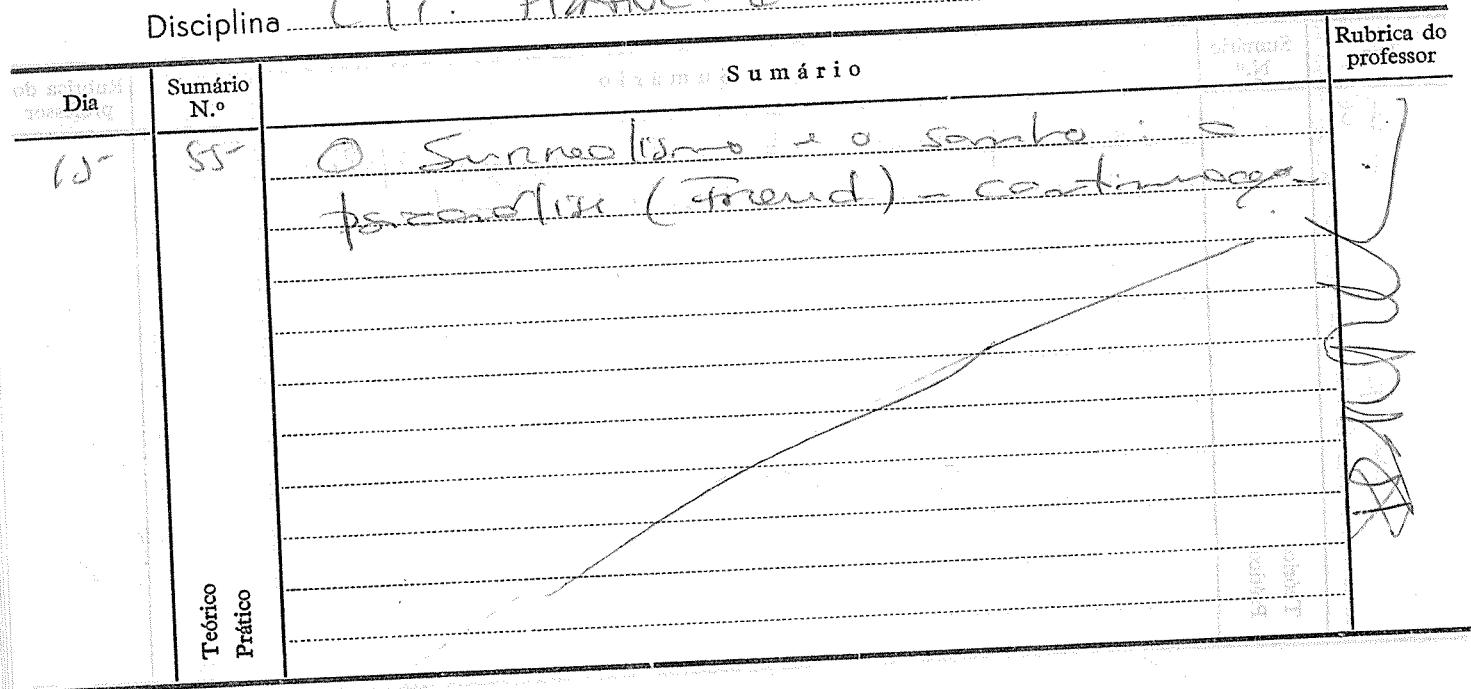 Disciplina LIT.
Dia
Sumário N.º
Sumário
Rubrica do professor
15 55 O Surrealismo e o sonho: a
psicanálise (Freud) - continuação.
Teórico
Prático